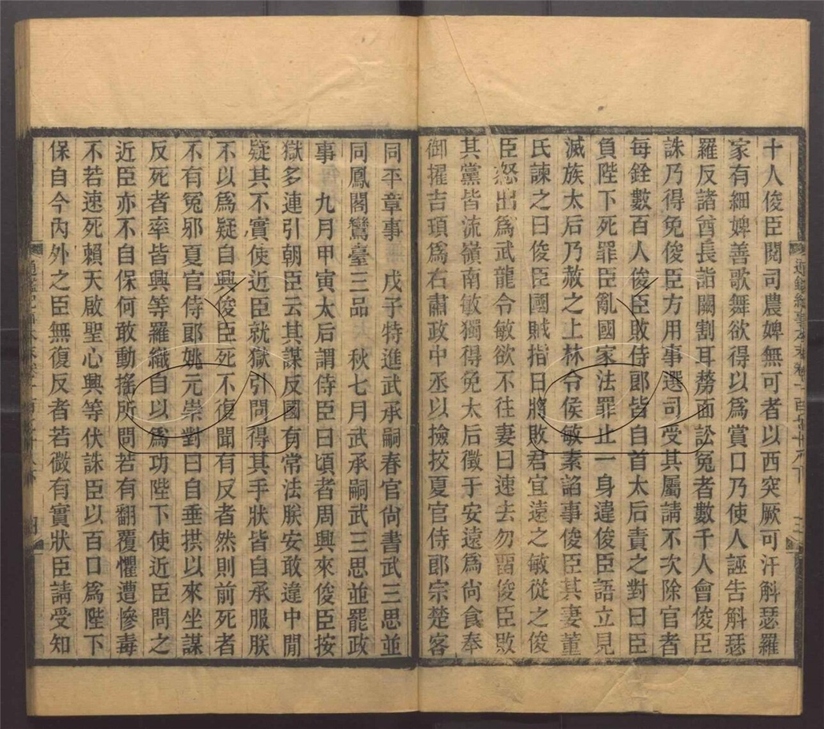 十人俊臣閱司農婢無可者以西突厥可汗斛瑟羅
家有細婢善歌舞欲得以爲賞口乃使人誣告斛瑟
羅反諸酋長詣闕割耳剺面訟冤者數千人會俊臣
誅乃得免俊臣方用事選司受其屬請不次除官者
每銓數百人俊臣敗侍郎皆自首太后責之對曰臣
負陛下死罪臣亂國家法罪止一身違俊臣語立見
滅族太后乃赦之上林令侯敏素諂事俊臣其妻董
氏諫之曰俊臣國賊指日將敗君宜遠之敏從之俊
臣怒出爲武龍令敏欲不往妻曰速去勿留俊臣敗
其黨皆流嶺南敏獨得免太后徵于安遠爲尚食奉
御擢吉頊爲右肅政中丞以撿挍夏官侍郎宗楚客
同平章事 戊子特進武承嗣春官尚書武三思並
同鳳閣鸞臺三品 秋七月武承嗣武三思並罷政
事 九月甲寅太后謂侍臣曰頃者周興來俊臣按
獄多連引朝臣云其謀反國有常法朕安敢違中閒
疑其不實使近臣就獄引問得其手狀皆自承服朕
不以爲疑自興俊臣死不復聞有反者然則前死者
不有冤邪夏官侍郎姚元崇對曰自垂拱以來坐謀
反死者率皆興等羅織自以爲功陛下使近臣問之
近臣亦不自保何敢動搖所問若有翻覆懼遭慘毒
不若速死賴天啟聖心興等伏誅臣以百口爲陛下
保自今內外之臣無復反者若微有實狀臣請受知